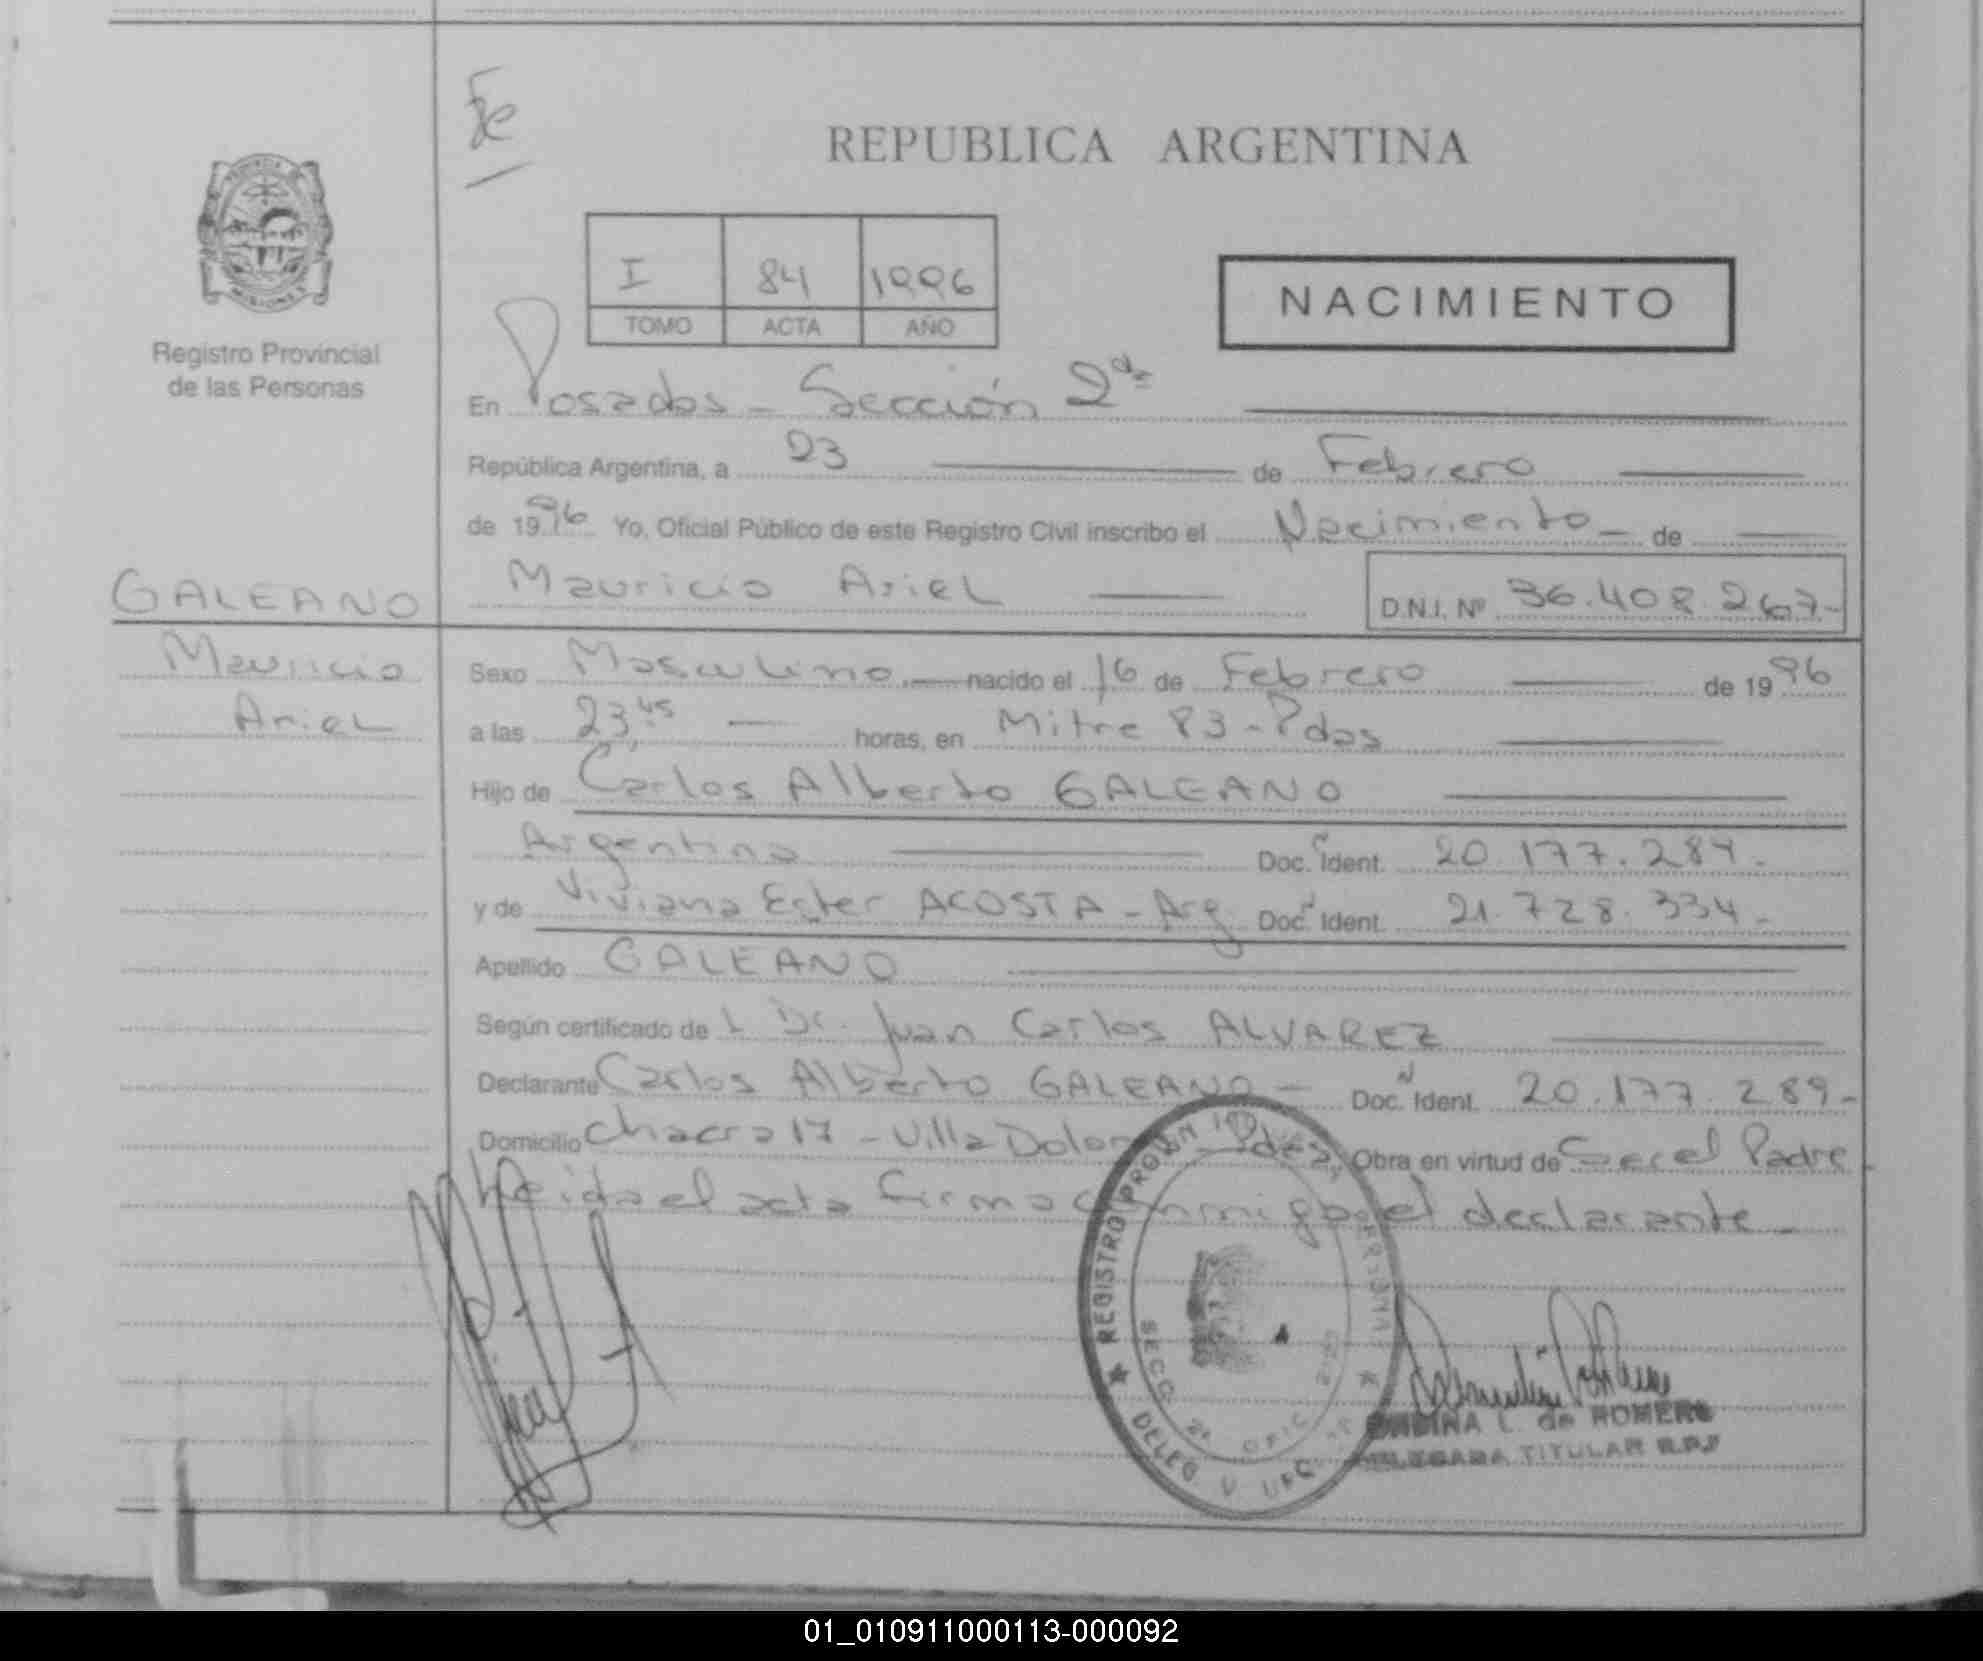 Fe
REPUBLICA ARGENTINA
PROVINCIA
MISIONES
Registro Provincial
de las Personas
I 84 1996
TOMO ACTA AÑO
NACIMIENTO
En Posadas - Sección 2da
República Argentina, a 23 de Febrero
de 1996 Yo, Oficial Público de este Registro Civil inscribo el Nacimiento - de
GALEANO Mauricio Ariel D.N.I. Nº 36.408.267-
Mauricio
Ariel
Sexo Masculino nacido el 16 de Febrero de 1996
a las 23,45 horas, en Mitre 83 - Pdas
Hijo de Carlos Alberto GALEANO
Argentino Doc. Ident. 20.177.289.
y de Viviana Ester ACOSTA - Arg. Doc. Ident. 21.728.334-
Apellido GALEANO
Según certificado de L Dr. Juan Carlos ALVAREZ
Declarante Carlos Alberto GALEANO - Doc. Ident. 20.177.289-
Domicilio Chacra 17 - Villa Obra en virtud de Ser el Padre
Leida el acta firma conmigo el declarante -
REGISTRO
SECC 2a OFIC
DELEG
L. de ROMERO
TITULAR
01_010911000113-000092